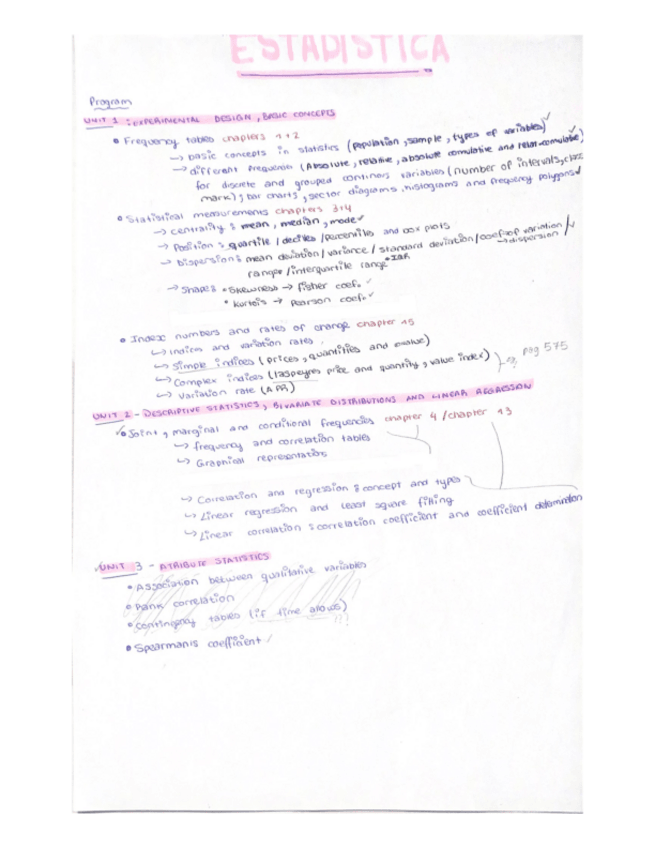 ESTADISTICA
Program
UNIT 1 : EXPERIMENTAL DESIGN, BASIC CONCEPTS
• Frequency tables chapters 1+2
→ basic concepts in statistics (population, sample, types of variables) ✓
→ different frequencies (Absolute, relative, absolute comulative and relat-comulative) ✓
for discrete and grouped continous variables (number of intervals, class
mark); bar charts, sector diagrams, histograms and frequency polygons ✓
• Statistical measurements chapters 3+4
→ centrality: mean, median, mode ✓
→ Position: quartile / deciles / percentiles and box plots
→ Dispersion: mean deviation / variance / standard deviation / coef of variation / ✓
→ dispersion
range / interquartile range • IQR
→ Shape: • Skewness → fisher coef. ✓
• kurtois → pearson coef. ✓
• Index numbers and rates of change chapter 15
↳ Indices and variation rates.
↳ Simple indices (prices, quantities and value)
↳ Complex indices (laspeyres price and quantity, value index) pag 575
↳ Variation rate (APR)
UNIT 2 - DESCRIPTIVE STATISTICS, BIVARIATE DISTRIBUTIONS AND LINEAR REGRESSION
✓ • Joint, marginal and conditional frequencies chapter 4 / chapter 13
↳ frequency and correlation tables
↳ Graphical representations
↳ Correlation and regression: concept and types
↳ Linear regression and least square fitting
↳ Linear correlation: correlation coefficient and coefficient determination
UNIT 3 - ATRIBUTE STATISTICS
• Association between qualitative variables
• Rank correlation
• Contingency tables (if time allows)
!??
• Spearman's coefficient /